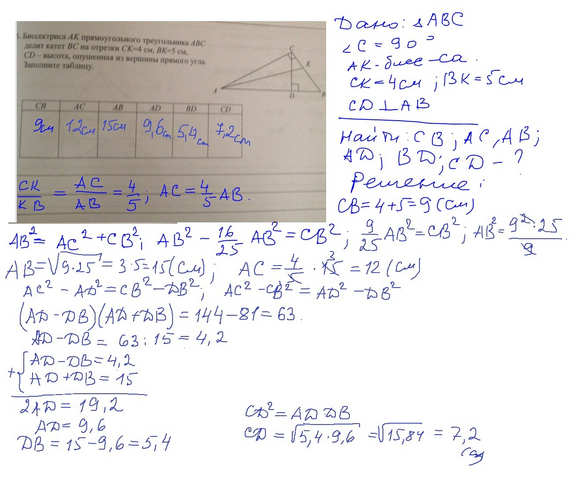 Биссектриса AK прямоугольного треугольника ABC
делит катет BC на отрезки CK=4 см, BK=5 см,
CD – высота, опущенная из вершины прямого угла.
Заполните таблицу.
C
K
A
D
B
CB AC AB AD BD CD
9см 12см 15см 9,6см 5,4см 7,2см
CK/KB = AC/AB = 4/5; AC = 4/5 AB.
Дано: △ABC
∠C = 90°
AK - бисс-са.
CK = 4см; BK = 5см
CD ⊥ AB
Найти: CB; AC, AB;
AD; BD; CD - ?
Решение:
CB = 4+5 = 9 (см)
AB² = AC² + CB²; AB² - 16/25 AB² = CB²; 9/25 AB² = CB²; AB² = 9²·25/9
AB = √9·25 = 3·5 = 15 (см); AC = 4/5 · 15 3 = 12 (см)
AC² - AD² = CB² - DB²; AC² - CB² = AD² - DB²
(AD - DB)(AD + DB) = 144 - 81 = 63.
AD - DB = 63 : 15 = 4,2
+ { AD - DB = 4,2
AD + DB = 15
2AD = 19,2
AD = 9,6
DB = 15 - 9,6 = 5,4
CD² = AD DB
CD = √5,4·9,6 = √15,84 = 7,2
(см)